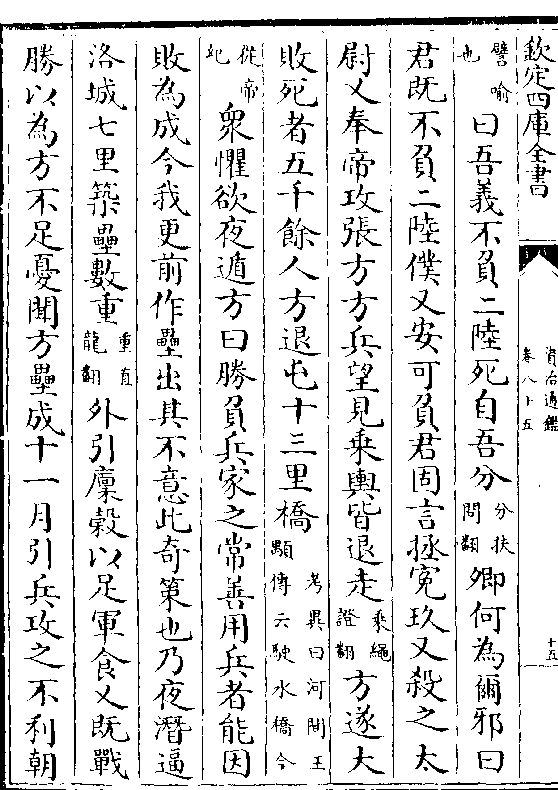 欽定四庫全書
資治通鑑
卷八十五
十五
譬喻也曰吾義不負二陸死自吾分分扶問翻卿何為爾邪曰
君既不負二陸僕又安可負君固言拯寃玖又殺之太
尉乂奉帝攻張方方兵望見乘輿皆退走乘繩證翻方遂大
敗死者五千餘人方退屯十三里橋考異曰河間王顒傳云駛水橋今
從帝紀衆懼欲夜遁方曰勝負兵家之常善用兵者能因
敗為成今我更前作壘出其不意此奇策也乃夜潛逼
洛城七里築壘數重重直龍翻外引廩穀以足軍食乂既戰
勝以為方不足憂聞方壘成十一月引兵攻之不利朝